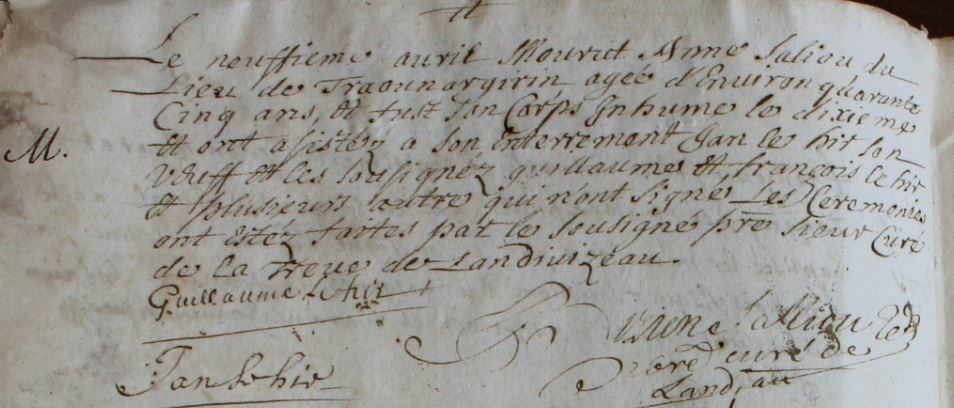 Le neuffieme avril Mourut Anne Saliou du
Lieu de Traounargirin agée d'Environ quarante
Cinq ans, et fust son Corps Inhume le dixieme
M.
Et ont asistez a son Enterrement Jan le hir son
veuff et les sousignez guillaume et françois le hir
et plusieurs autre qui n'ont signé Les Ceremonies
ont Estez faites par le sousigné pre sieur Curé
de La Treue de Landiuizeau.
Guillaume Le hir
Salliou
pre curé de
Jan le hir
Land, au